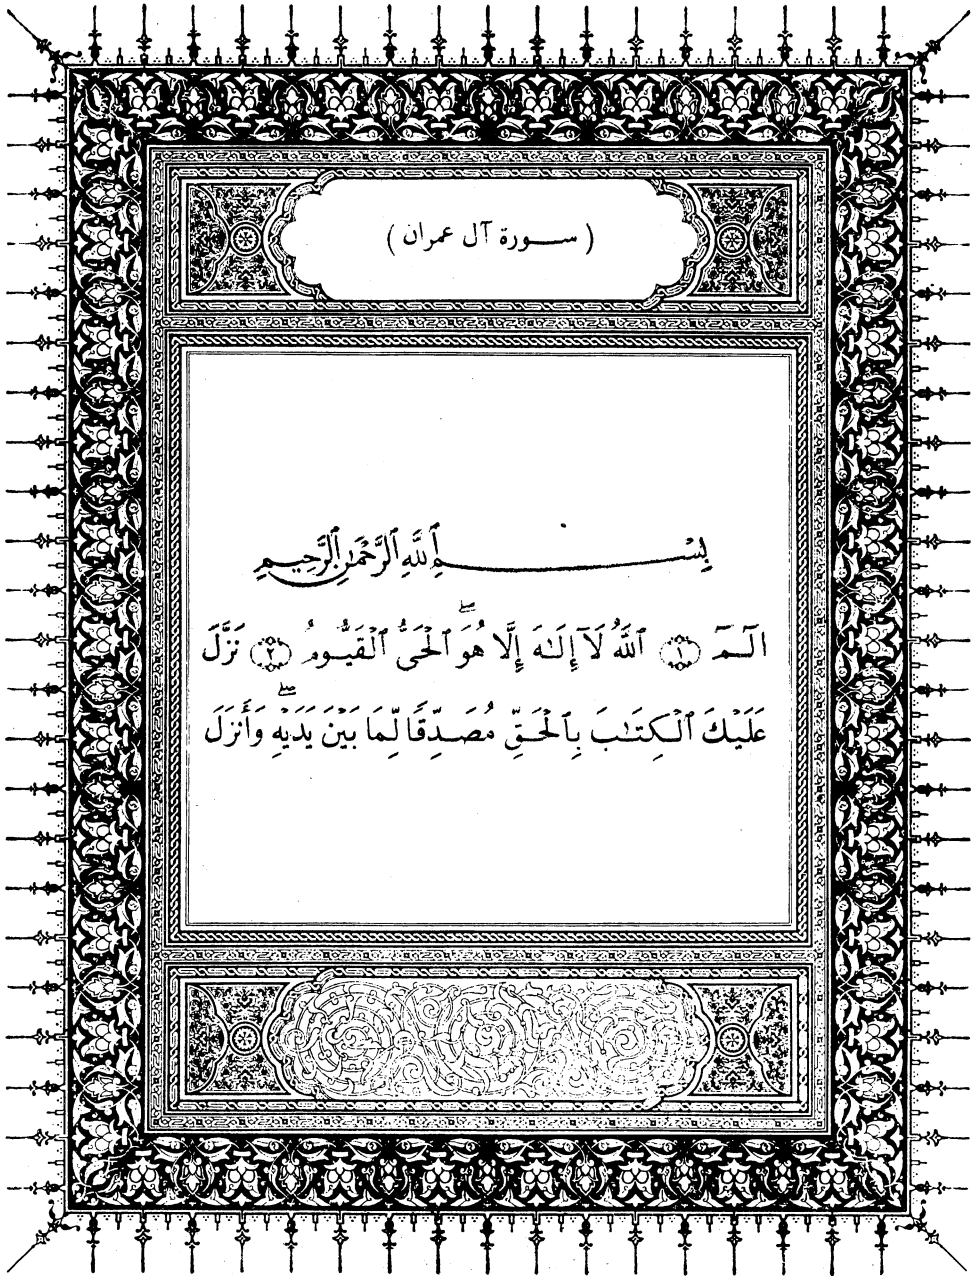 ( ســورة آل عمران )
بِسْــــــمِ ٱللَّهِ ٱلرَّحْمَٰنِ ٱلرَّحِيمِ
الٓمٓ ﴿١﴾ ٱللَّهُ لَآ إِلَٰهَ إِلَّا هُوَۖ ٱلْحَىُّ ٱلْقَيُّومُ ﴿٢﴾ نَزَّلَ
عَلَيْكَ ٱلْكِتَٰبَ بِٱلْحَقِّ مُصَدِّقًا لِّمَا بَيْنَ يَدَيْهِۖ وَأَنزَلَ